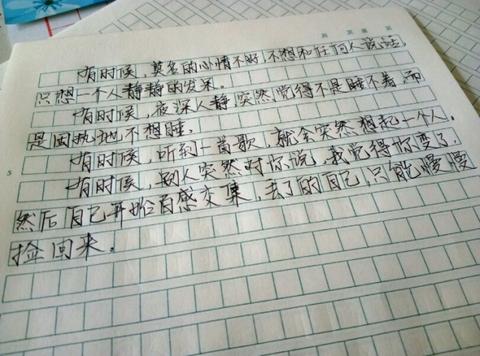 有时候,莫名的心情不好,不想和任何人说话,
只想一个人静静的发呆。
有时候,夜深人静,突然觉得不是睡不着,而
是固执地不想睡。
有时候,听到一首歌,就会突然想起一个人。
有时候,别人突然对你说,我觉得你变了,
然后自己开始百感交集,丢了的自己,只能慢慢
捡回来。